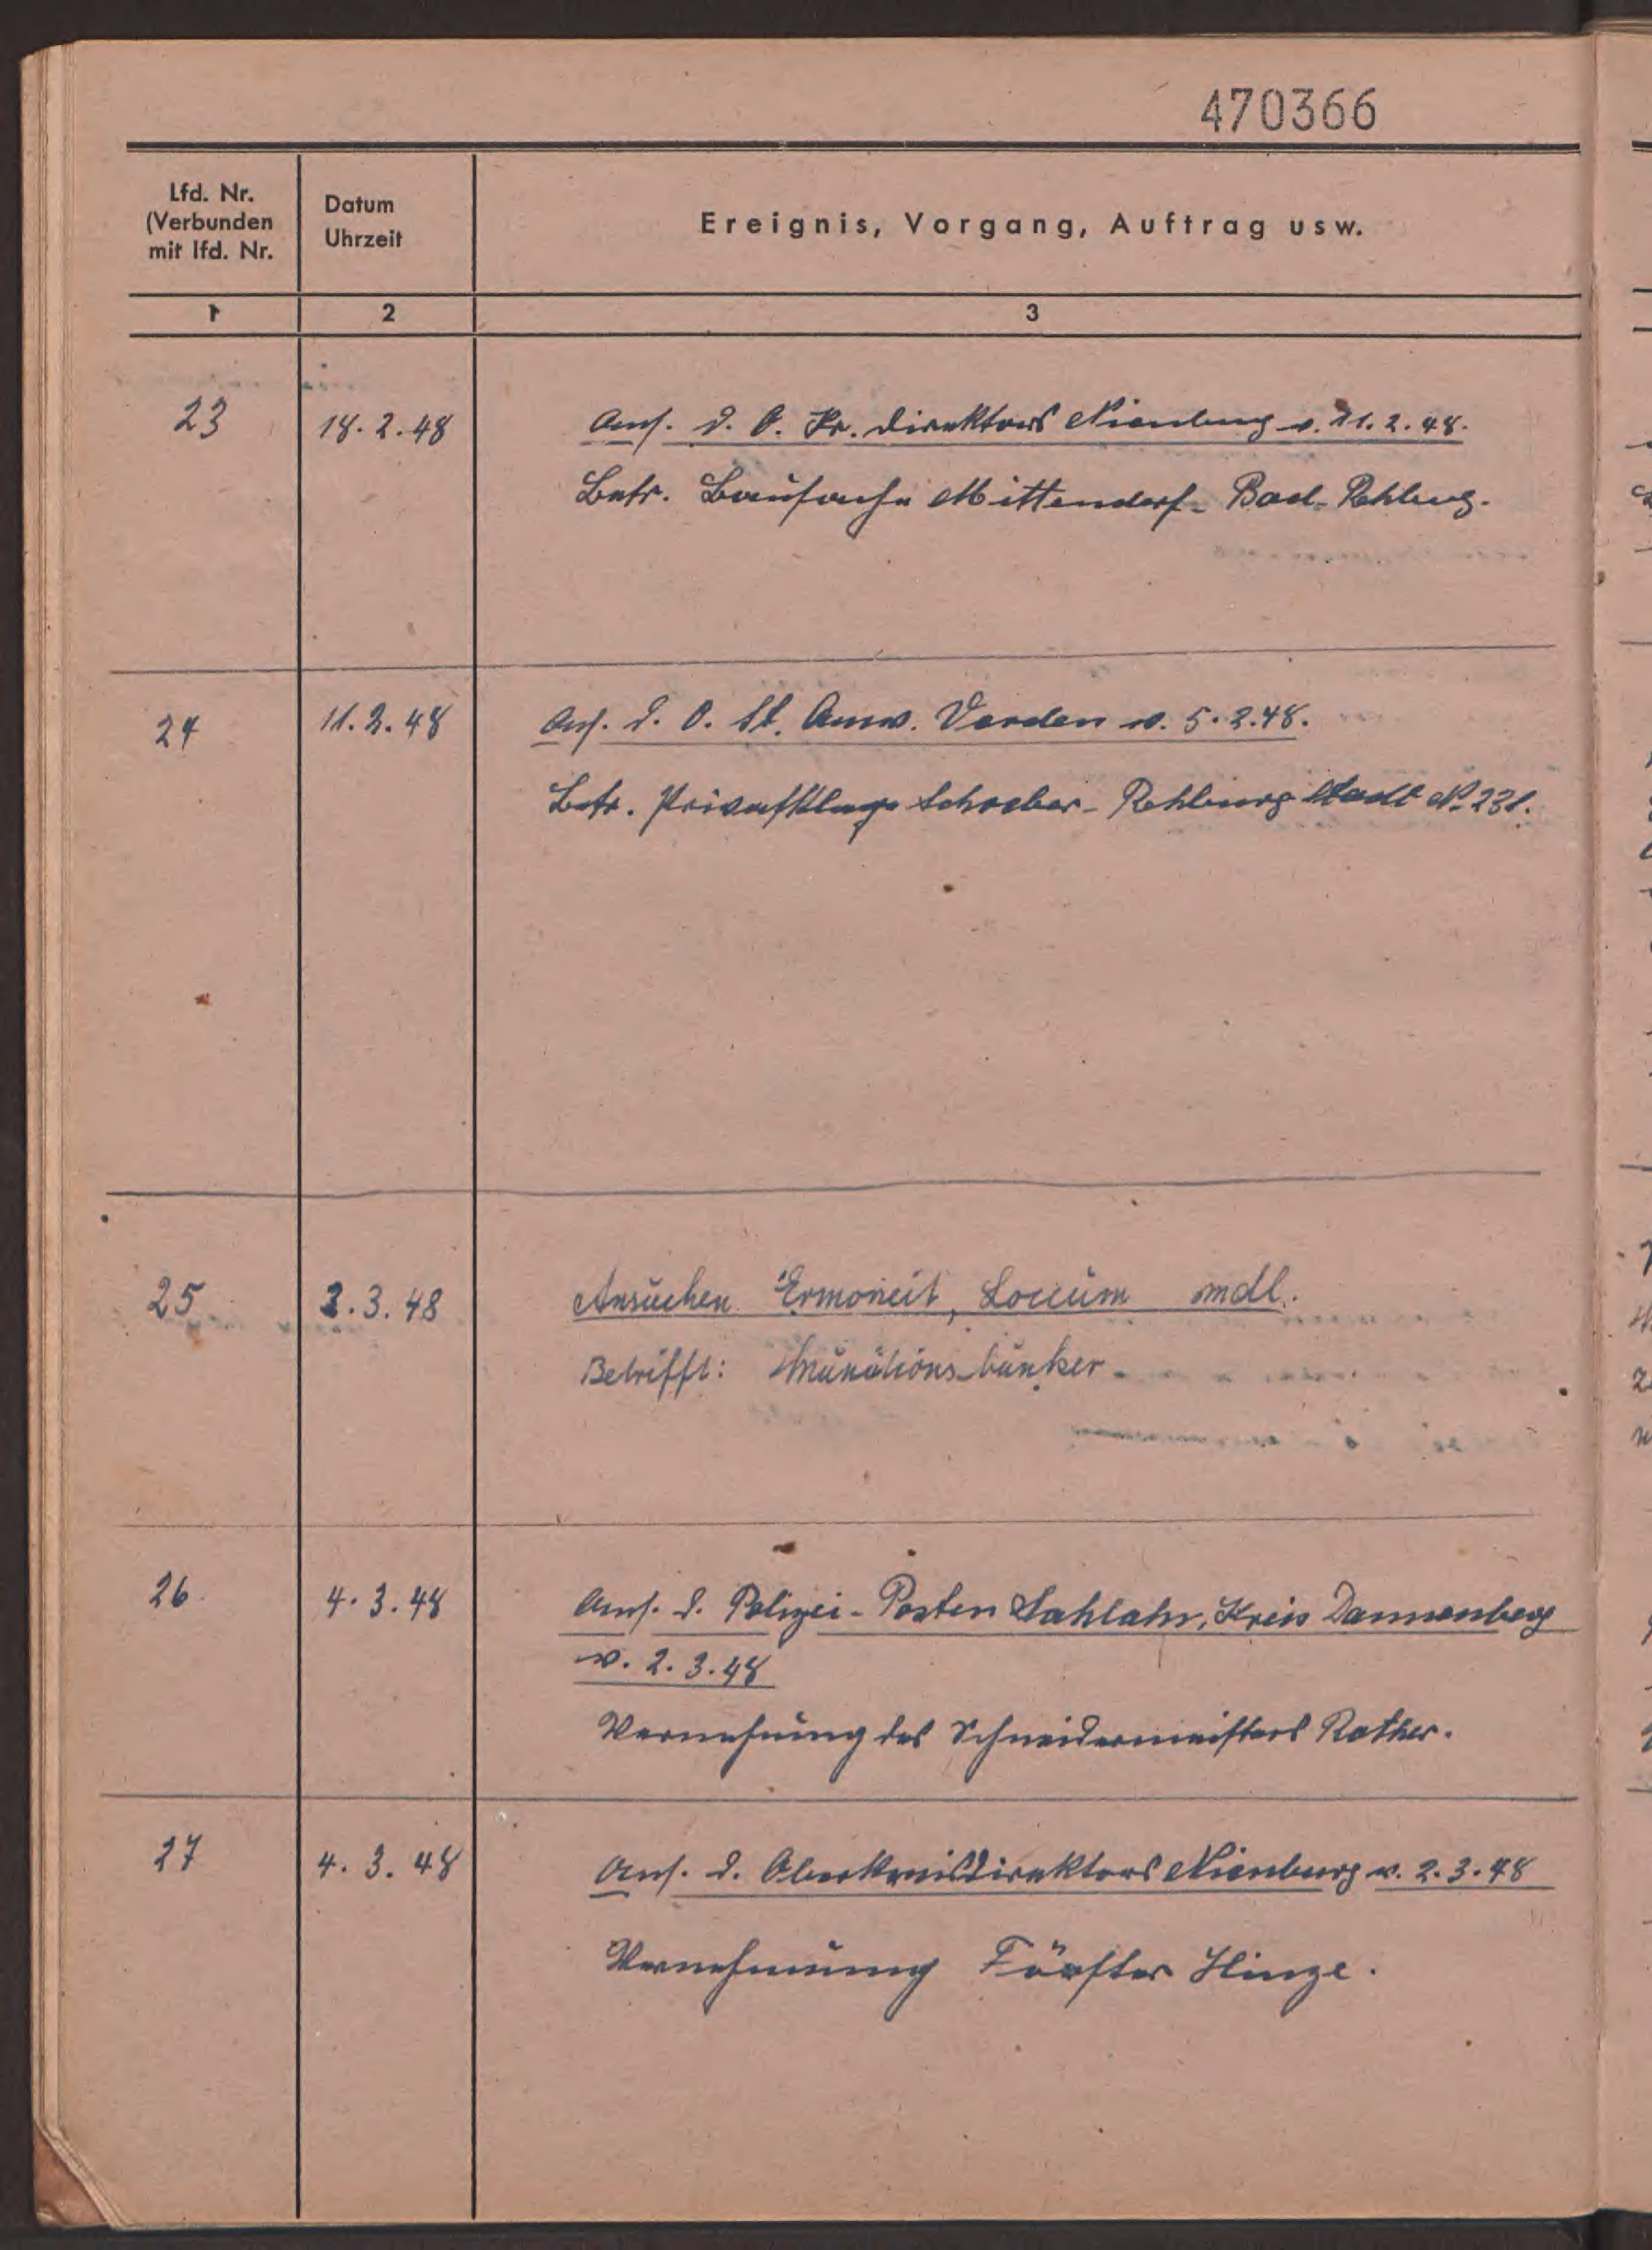 470366
Lfd. Nr.
(Verbunden
mit lfd. Nr.
Datum
Uhrzeit
Ereignis, Vorgang, Auftrag usw.
1
2
3
23
18.2.48
Ans. d. O. Kr. direktors Nienburg v. 11.2.48.
Betr. Bausache Mittendorf - Bad-Rehburg.
24
11.2.48
Ans. d. O. St. Anw. Verden v. 5.2.48.
Betr. Privatklage Schreber - Rehburg Stadt No 231.
25
3.3.48
Ansuchen Ermoneit, Loccum mdl.
Betrifft: Munitionsbunker
26
4.3.48
Ans. d. Polizei-Posten Kreis Dannenberg
v. 2.3.48
Vernehmung des Schneidermeisters Rother.
27
4.3.48
Ans. d. Oberkreisdirektors Nienburg v. 2.3.48
Vernehmung Förster Hinze.